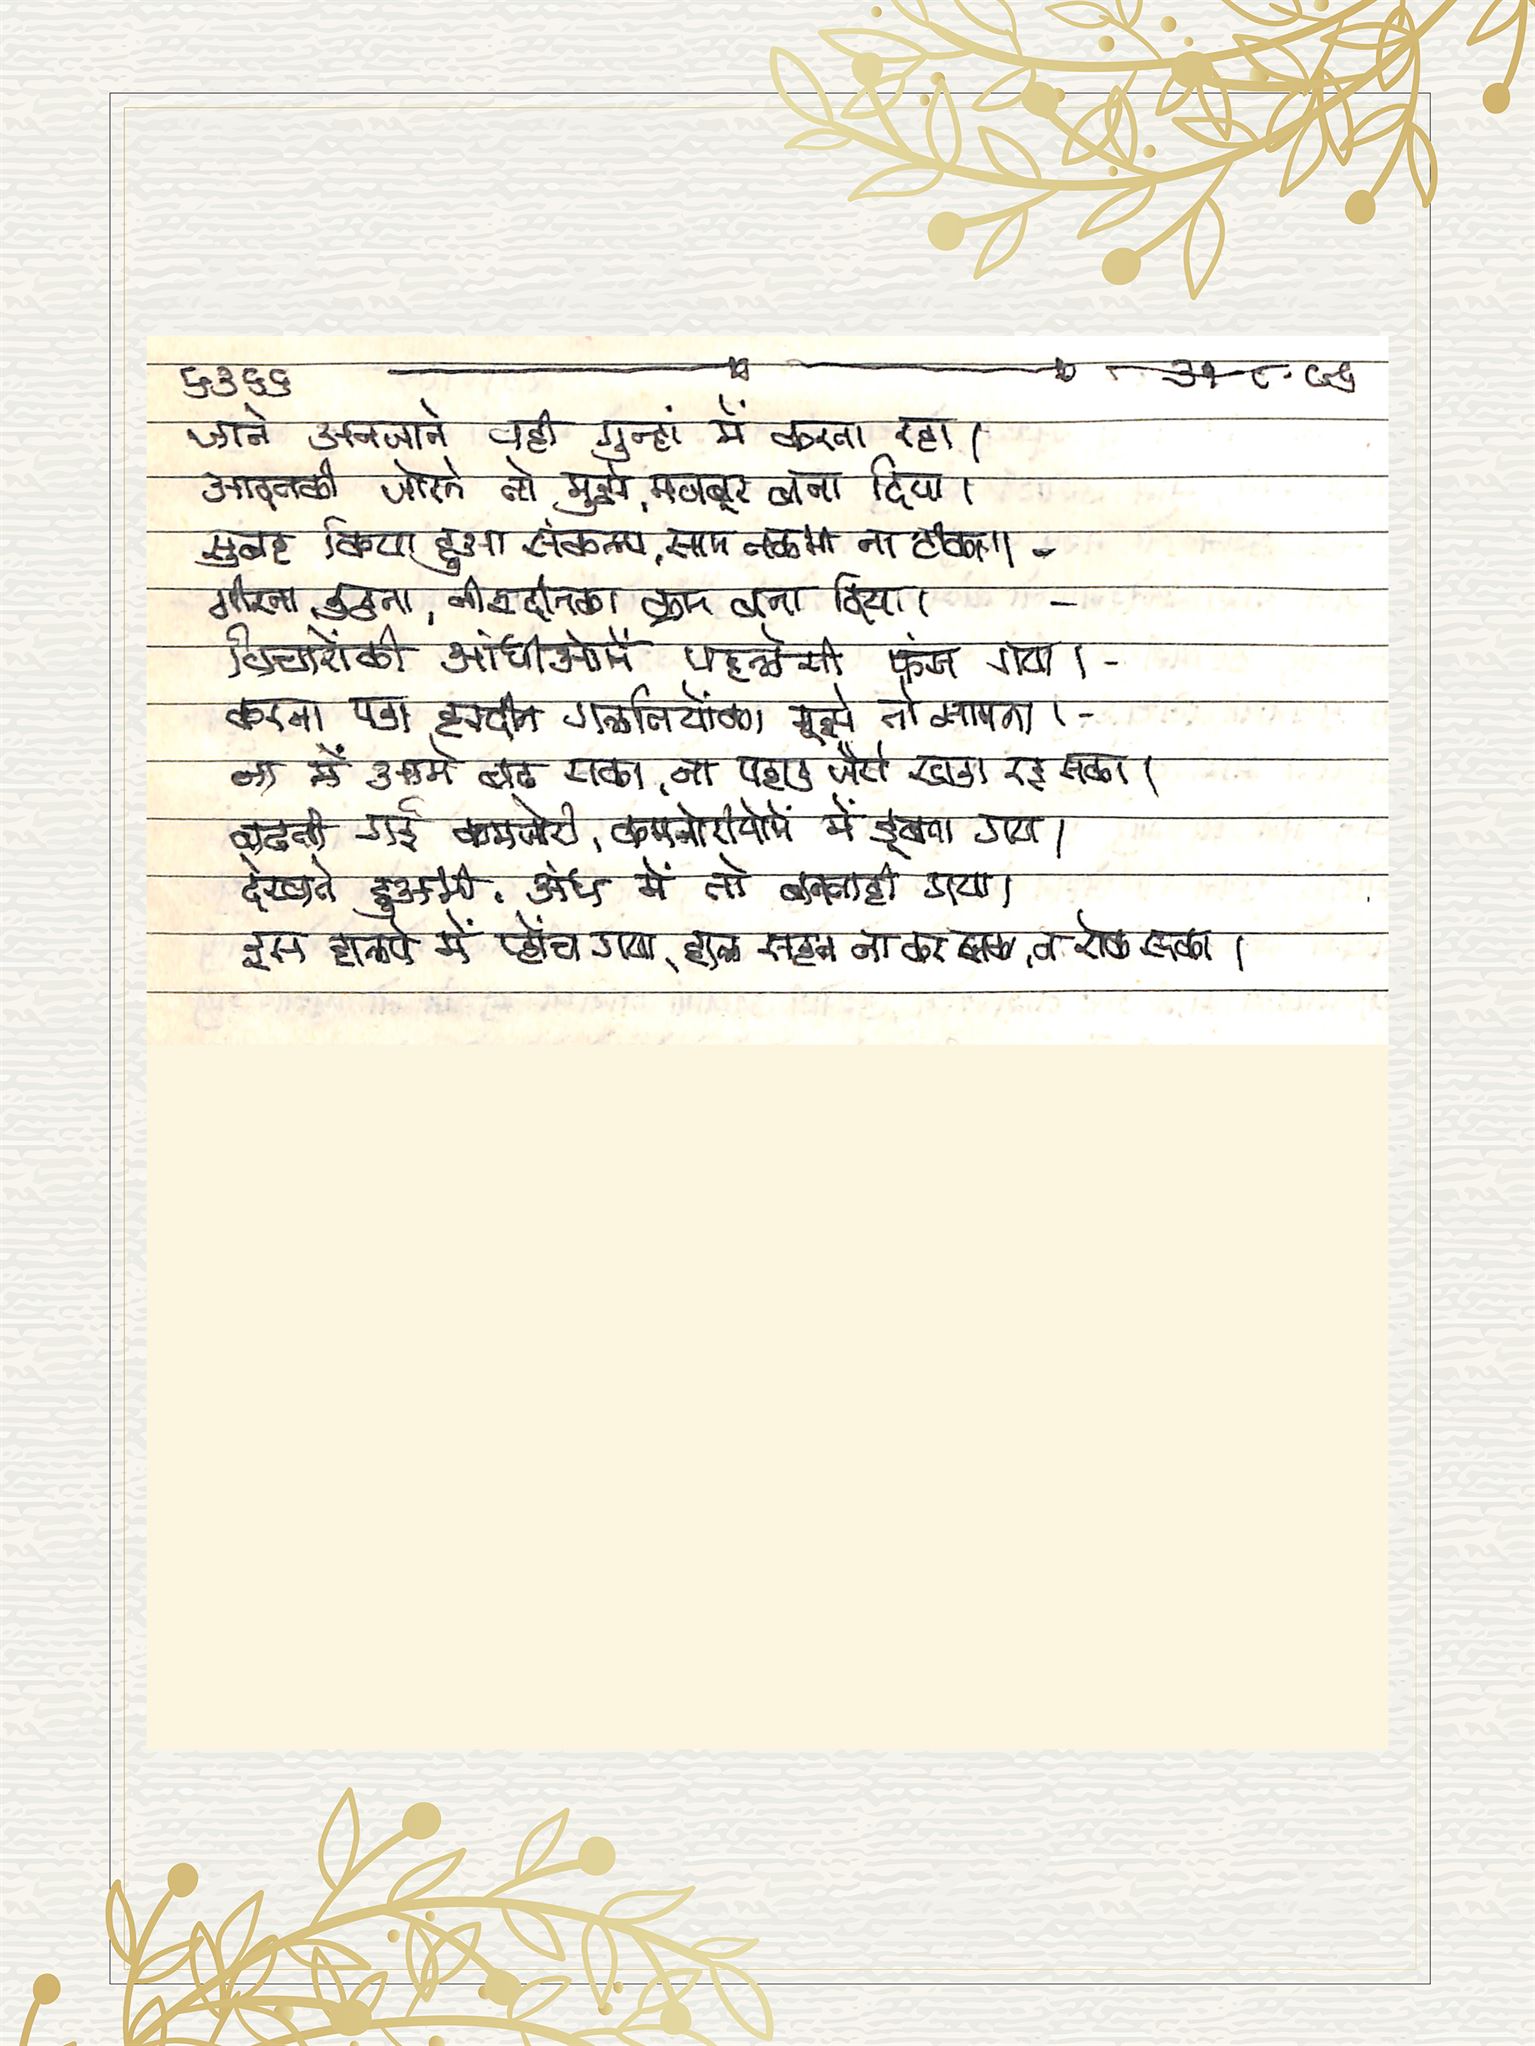 ५३६६ ३१-८-८६
जाने अनजाने वही गुन्हां में करता रहा।
आदतकी जोरने तो मुझे, मजबूर बना दिया।
सुबह किया हुआ संकल्प, साम तकभी ना टीका। -
गीरना, उठना, नीरदीनका क्रम बना दिया। -
विचारोंकी आंधीओमें पहलेसी फंज गया। -
करना पडा हरदीन गलतियोंका मुझे तो सामना। -
ना में उसमे बढ सका, ना पहाड जैसे खडा रह सका।
बढती गई कमजोरी, कमजोरीयोमें में डूबता गया।
देखते हुअेभी, अंध में तो बनताही गया।
इस हालपे में प्होंच गया, हाल सहन ना कर सका, न रोक सका।